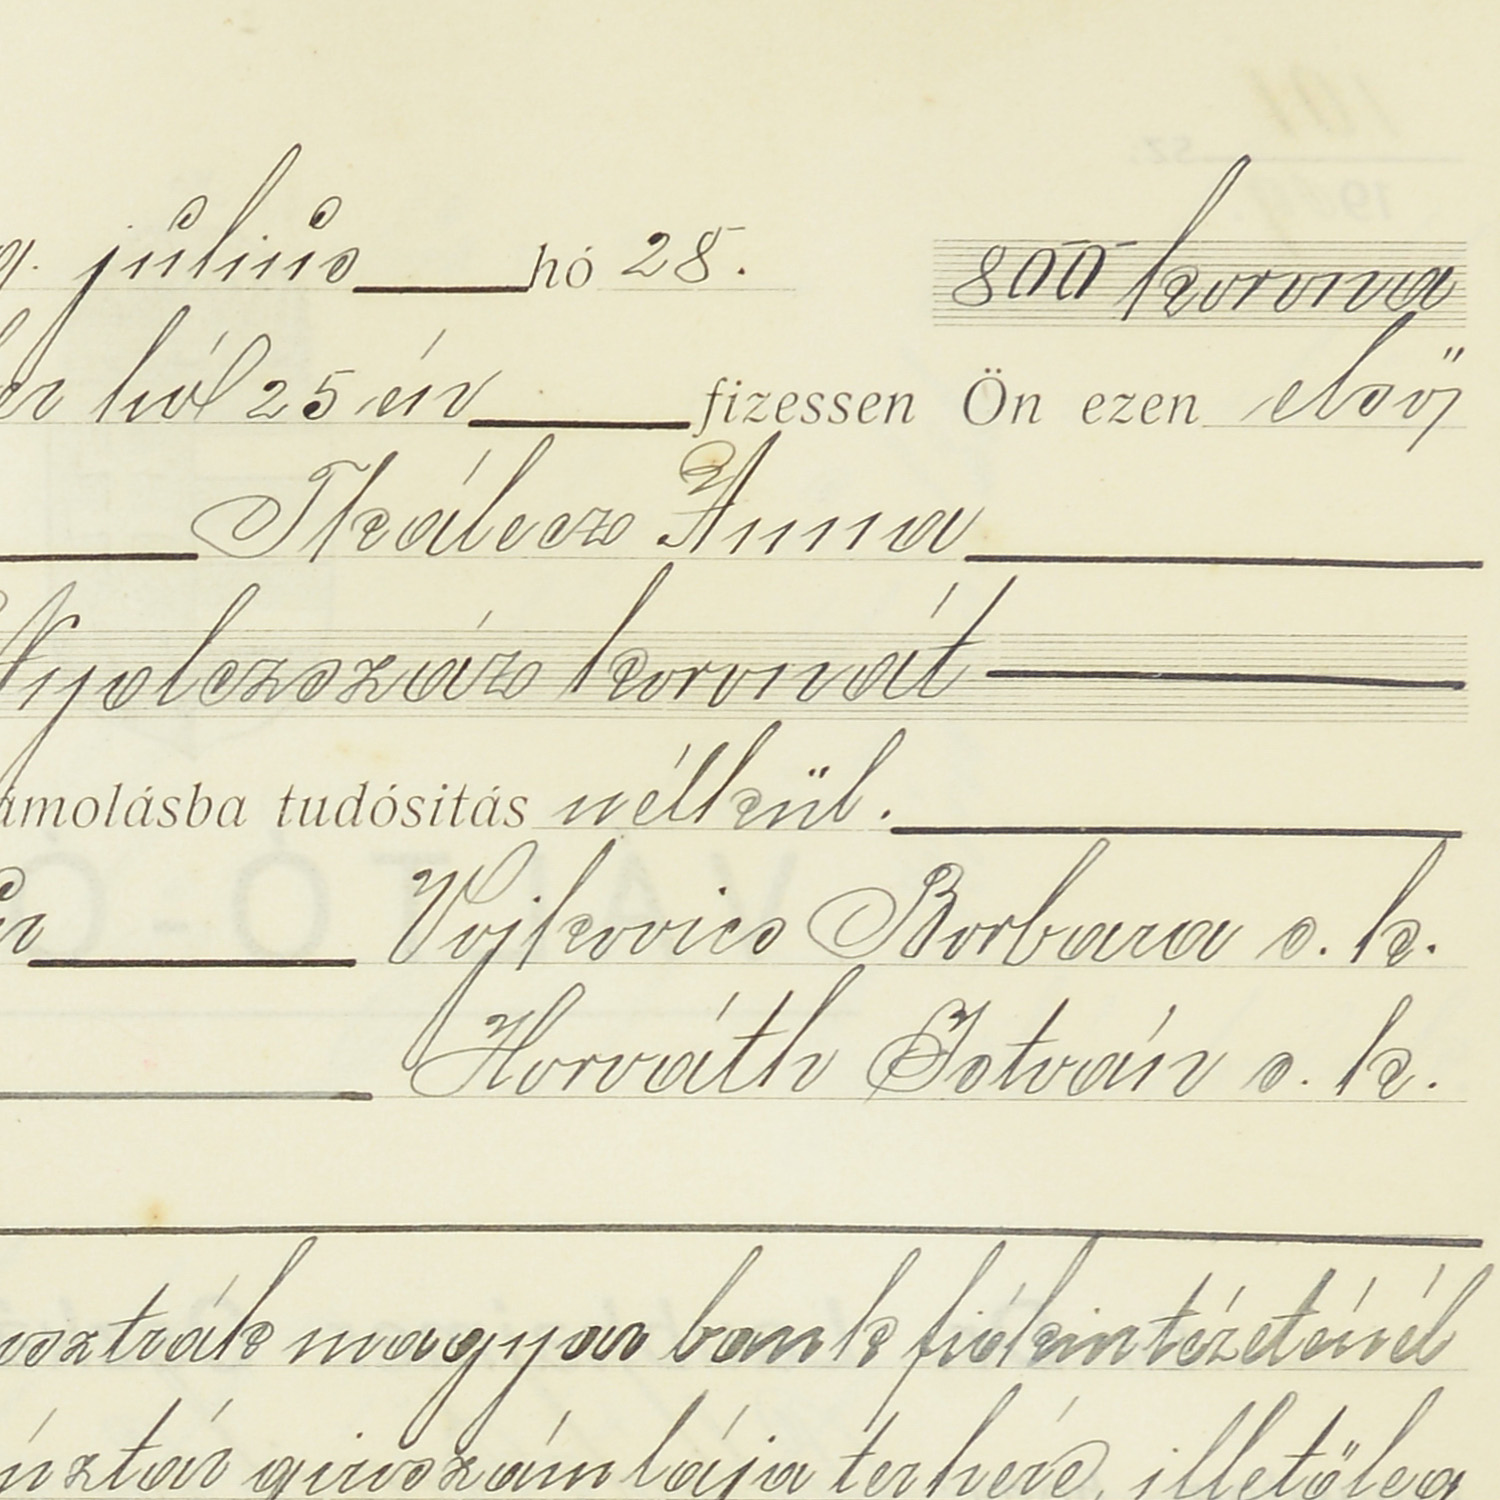 július hó 28. 800 korona
hó 25 én fizessen Ön ezen első
Tkálecz Anna
Nyolczszáz koronát
ámolásba tudósitás nélkül.
Vojkovics Borbara s. k.
Horváth István s. k.
osztrák magyar bank fiókintézeténél
nztár giroszámlája terhére, illetőleg